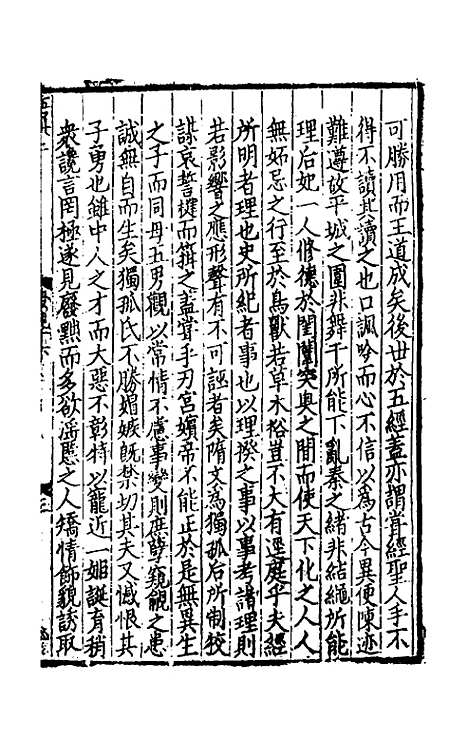 可勝用而王道成矣後世於五經蓋亦謂嘗經聖人手不
得不讀其讀之也口諷吟而心不信以為古今異便陳迹
難遵故平城之圍非舞干所能下亂秦之緒非結繩所能
理后妃一人修德於閨闥突奥之間而使天下化之人人
無妬忌之行至於鳥獸若草木俗豈不大有逕庭乎夫經
所明者理也史所紀者事也以理揆之事以事考諸理則
若影響之應形聲有不可誣者矣隋文為獨孤后所制狡
謀哀誓揵而箝之蓋嘗手刃宮嬪帝不能止於是無異生
之子而同母五男觀以常情不慮事變則庶孽窺覦之患
誠無自而生矣獨孤氏不勝媢嫉旣禁切其夫又憾恨其
子勇也雖中人之才而大惡不彰特以寵近一姬誕育稍
衆讒言罔極遂見廢黜而多欲滛慝之人矯情飾貌誘取